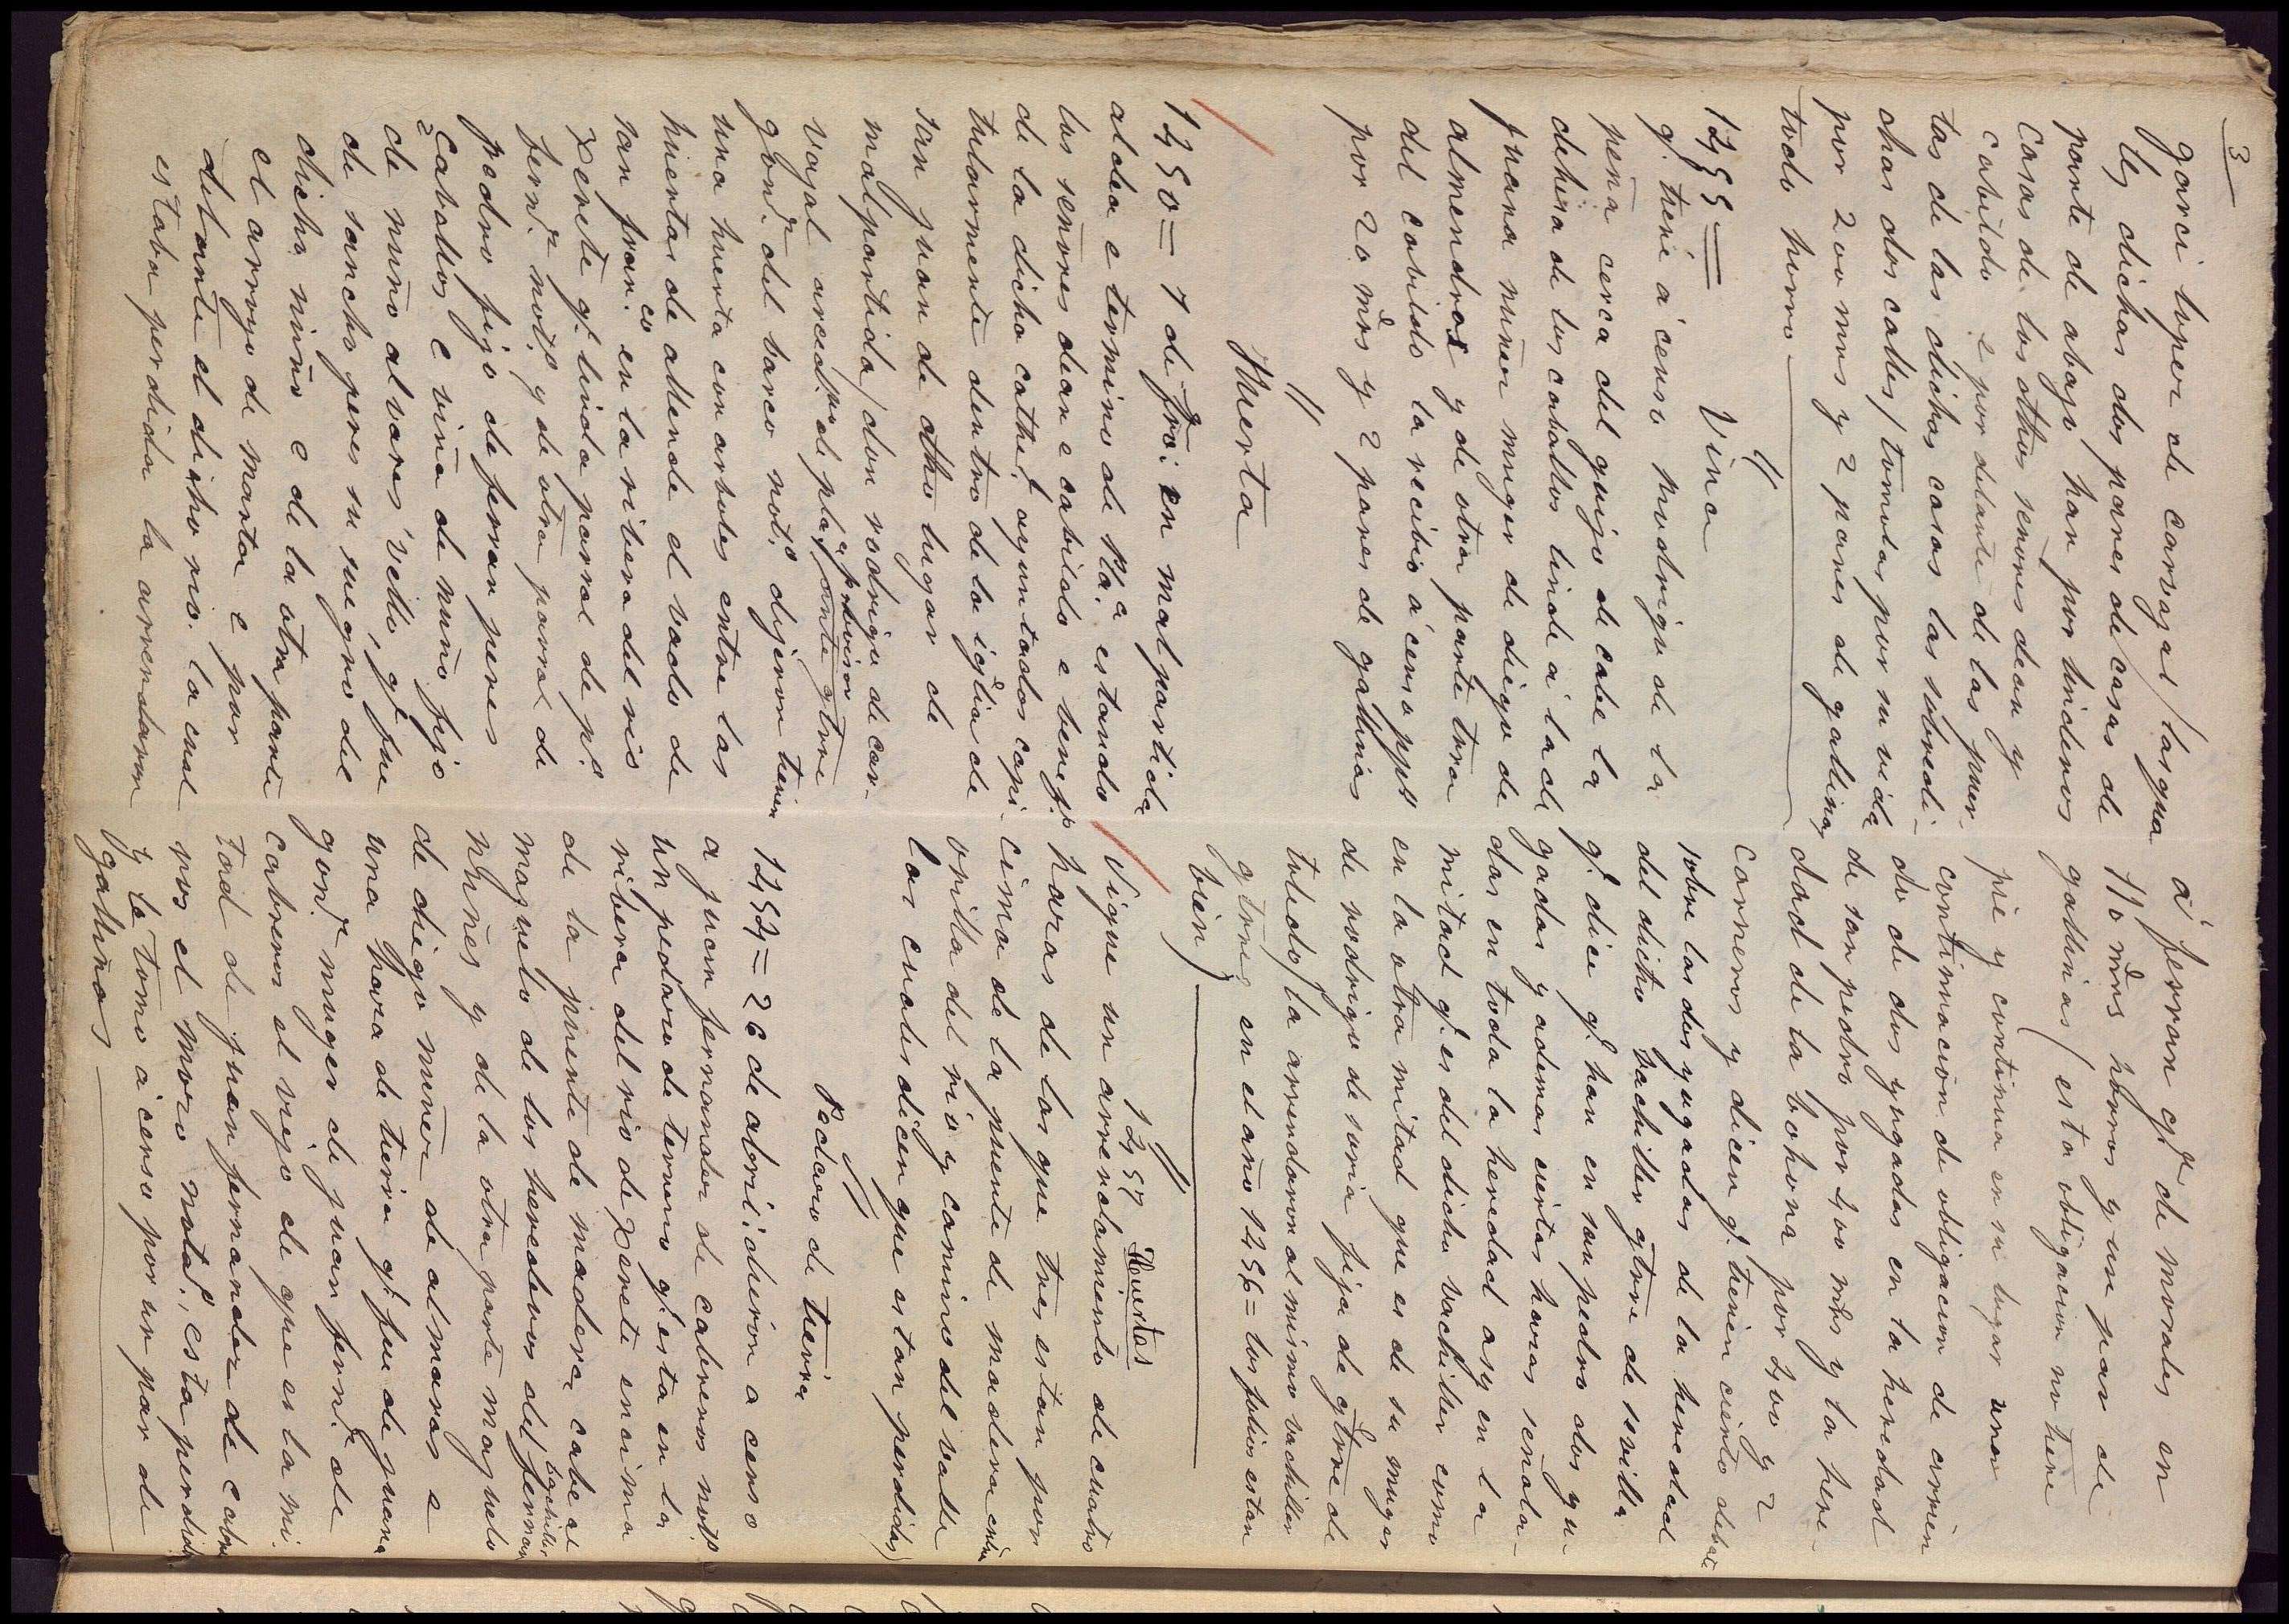 3
garci loper de carvajal / las qua
les dichas dos pares de casas de
parte de abajo han por linderos
casas de los dthos señores dean y
cabildo e por delante de las puer-
tas de las dichas casas las sobredi-
chas dos calles / tomolas por su vida
por 200 mrs y 2 pares de gallinas
todo horro
Vina
1455 =
q.e tiene á censo rodrigo de la
peña cerca del guijo de cabe la
dehesa de los caballos linde á la de
juana nuñer muger de diego de
almendros y de otra parte tra
del cabildo la recibio á censo ppt
por 20 mrs y 2 pares de gallinas
Huerta
1450 = 7 de fro: en malpartida
aldea e termino de pla.ª estando
los señores dean e cabildo e benef.º
de la dicha cathe.l ayuntados capi-
tularmente dentro de la iglia de
san juan de dtho lugar de
malpartida / don rodrigo de car-
vajal arced.no de pla.ª e provisor ante gtrre
gonr del barco not.º dijeron tienen
una huerta con arboles entre las
huertas de allende el vado de
san fran.co en la ribera del rio
xerete q.e linda parral de p.º
fernr not.º y de otra parral de
pedro fijo de ferran peres
ceballos e viña de nuño fijo
de nuño alvares vello, q.e fue
de sancho peres su suegro del
dicho nuño e de la otra parte
el arroyo de marta e por
delante el dicho rio. la cual
estaba perdida la arrendaron
á ferran gr de morales en
110 mrs horros y un par de
gallinas / esta obligacion no tiene
pie y continua en su lugar una
continuacion de obligacion de arrien
do de dos yugadas en la heredad
de san pedro por 400 mrs y la here-
dad de la bohona por 400 y 2
carneros y dicen q.e tienen cierto debate
sobre las dos yugadas de la heredad
del dicho bachiller gtrre de sevilla
q.e dice q.e han en san pedro dos yu-
gadas y ademas ciertas havas señala-
das en toda la heredad asy en la
mitad q.e es del dicho bachiller como
en la otra mitad que es de su muger
de rodrigo de soria fija de gtrre de
toledo / la arrendaron al mismo bachiller
gtrres en el año 1456 = los folios estan
bien)
1457 Huertas
Sigue un arrendamiento de cuatro
havas de las que tres estan por
cima de la puente de madera en la
orilla del rio y camino del valle
las cuales dicen que estan perdidas)
Pedazo de tierra
1454 = 26 de abril: dieron a censo
a juan fernandes de cabreros not.º
un pedazo de terreno q.e esta en la
ribera del rio de xerete encima
de la puente de madera, cabe al
majuelo de los herederos del bachiller ferran
nuñes y de la otra parte majuelo
de diego nuñer de almaras e
una hava de tierra q.e fue de juana
gonr muger de juan fernr de
cabreros el viejo de que es la mi-
tad de juan fernander de cabre
ros el moro notar.º, esta perdida
y le tomo a censo por un par de
gallinas